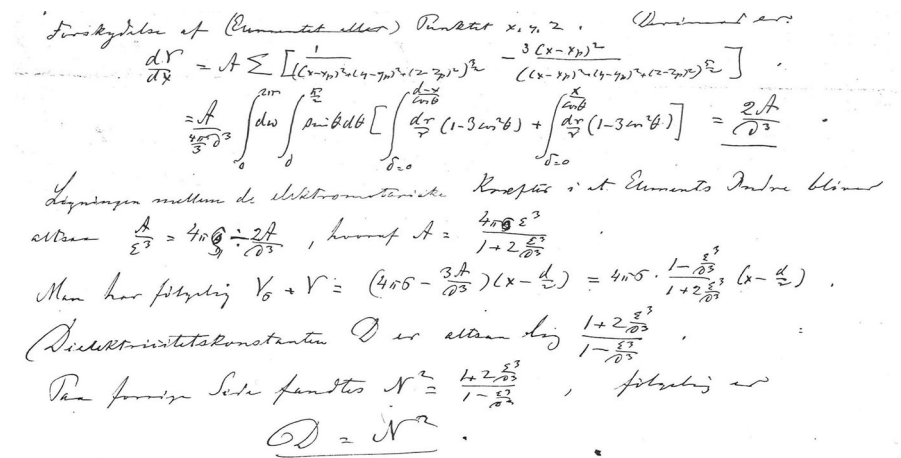 Forskydelse af (Elementet eller) Punktet x, y, z. Derimod er:
dV/dx = A Σ [ 1/((x-x_p)²+(y-y_p)²+(z-z_p)²)^{3/2} - 3(x-x_p)²/((x-x_p)²+(y-y_p)²+(z-z_p)²)^{5/2} ] .
= A/(4π/3 δ³) ∫₀^{2π} dω ∫₀^{π/2} sinθdθ [ ∫_{δ=0}^{(d-x)/cosθ} dr/r (1-3cos²θ) + ∫_{δ=0}^{x/cosθ} dr/r (1-3cos²θ) ] = 2A/δ³ .
Ligningen mellem de elektromotoriske Kræfter i et Elements Indre bliver
altsaa A/ε³ = 4πσ ÷ 2A/δ³ , hvoraf A = 4πσε³/(1+2 ε³/δ³)
Man har følgelig V_σ + V = (4πσ - 3A/δ³)(x - d/2) = 4πσ · (1 - ε³/δ³)/(1+2 ε³/δ³) (x - d/2) .
Dielektricitetskonstanten D er altsaa lig (1+2 ε³/δ³)/(1 - ε³/δ³) .
Paa forrige Side fandtes N² = (1+2 ε³/δ³)/(1 - ε³/δ³) , følgelig er
D = N² .